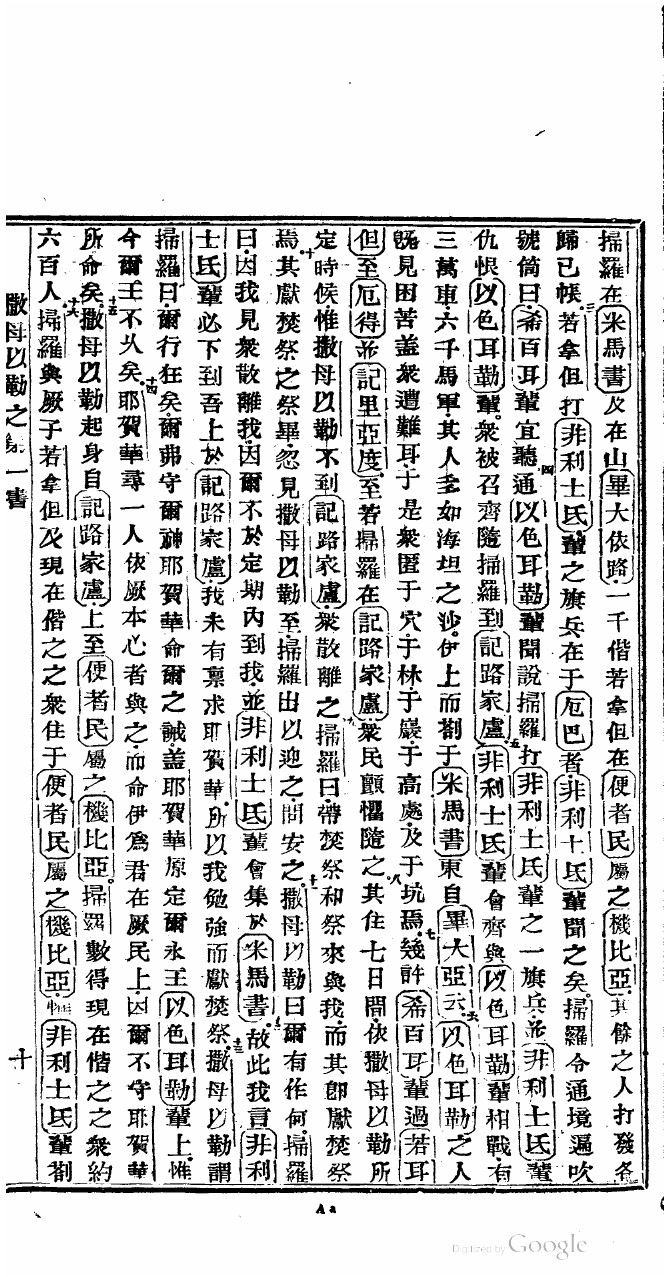 掃羅在米馬書及在山畢大依路一千偕若拿但在便者民屬之機比亞其餘之人打發各
歸已帳三若拿但打非利士氏輩之旗兵在于厄巴者非利士氏輩聞之矣掃羅令通境遍吹
號筒曰希百耳輩宜聽四通以色耳勒輩聞說掃羅打非利士氏輩之一旗兵並非利士氏輩
仇恨以色耳勒輩衆被召齊隨掃羅到記路家盧五非利士氏輩會齊與以色耳勒輩相戰有
三萬車六千馬軍其人多如海坦之沙伊上而劄于米馬書東自畢大亞云六以色耳勒之人
既見困苦蓋衆遭難耳于是衆匿于穴于林于巖于高處及于坑焉七幾許希百耳輩過若耳
但至厄得並記里亞度至若掃羅在記路家盧衆民顫懼隨之八其住七日間依撒母以勒所
定時候惟撒母以勒不到記路家盧衆散離之九掃羅曰帶焚祭和祭來與我而其卽獻焚祭
焉十其獻焚祭之祭畢忽見撒母以勒至掃羅出以迎之問安之十一撒母以勒曰爾有作何掃羅
曰因我見衆散離我因爾不於定期內到我並非利士氏輩會集於米馬書十二故此我言非利
士氏輩必下到吾上於記路家盧我未有稟求耶賀華所以我勉強而獻焚祭十三撒母以勒謂
掃羅曰爾行狂矣爾弗守爾神耶賀華命爾之誡蓋耶賀華原定爾永王以色耳勒輩上十四惟
今爾王不久矣耶賀華尋一人依厥本心者與之而命伊爲君在厥民上因爾不守耶賀華
所命矣十五撒母以勒起身自記路家盧上至便者民屬之機比亞掃羅數得現在偕之之衆約
六百人十六掃羅與厥子若拿但及現在偕之之衆住于便者民屬之機比亞惟非利士氏輩劄
撒母以勒之第一書
十
Aa
Digitized by Google